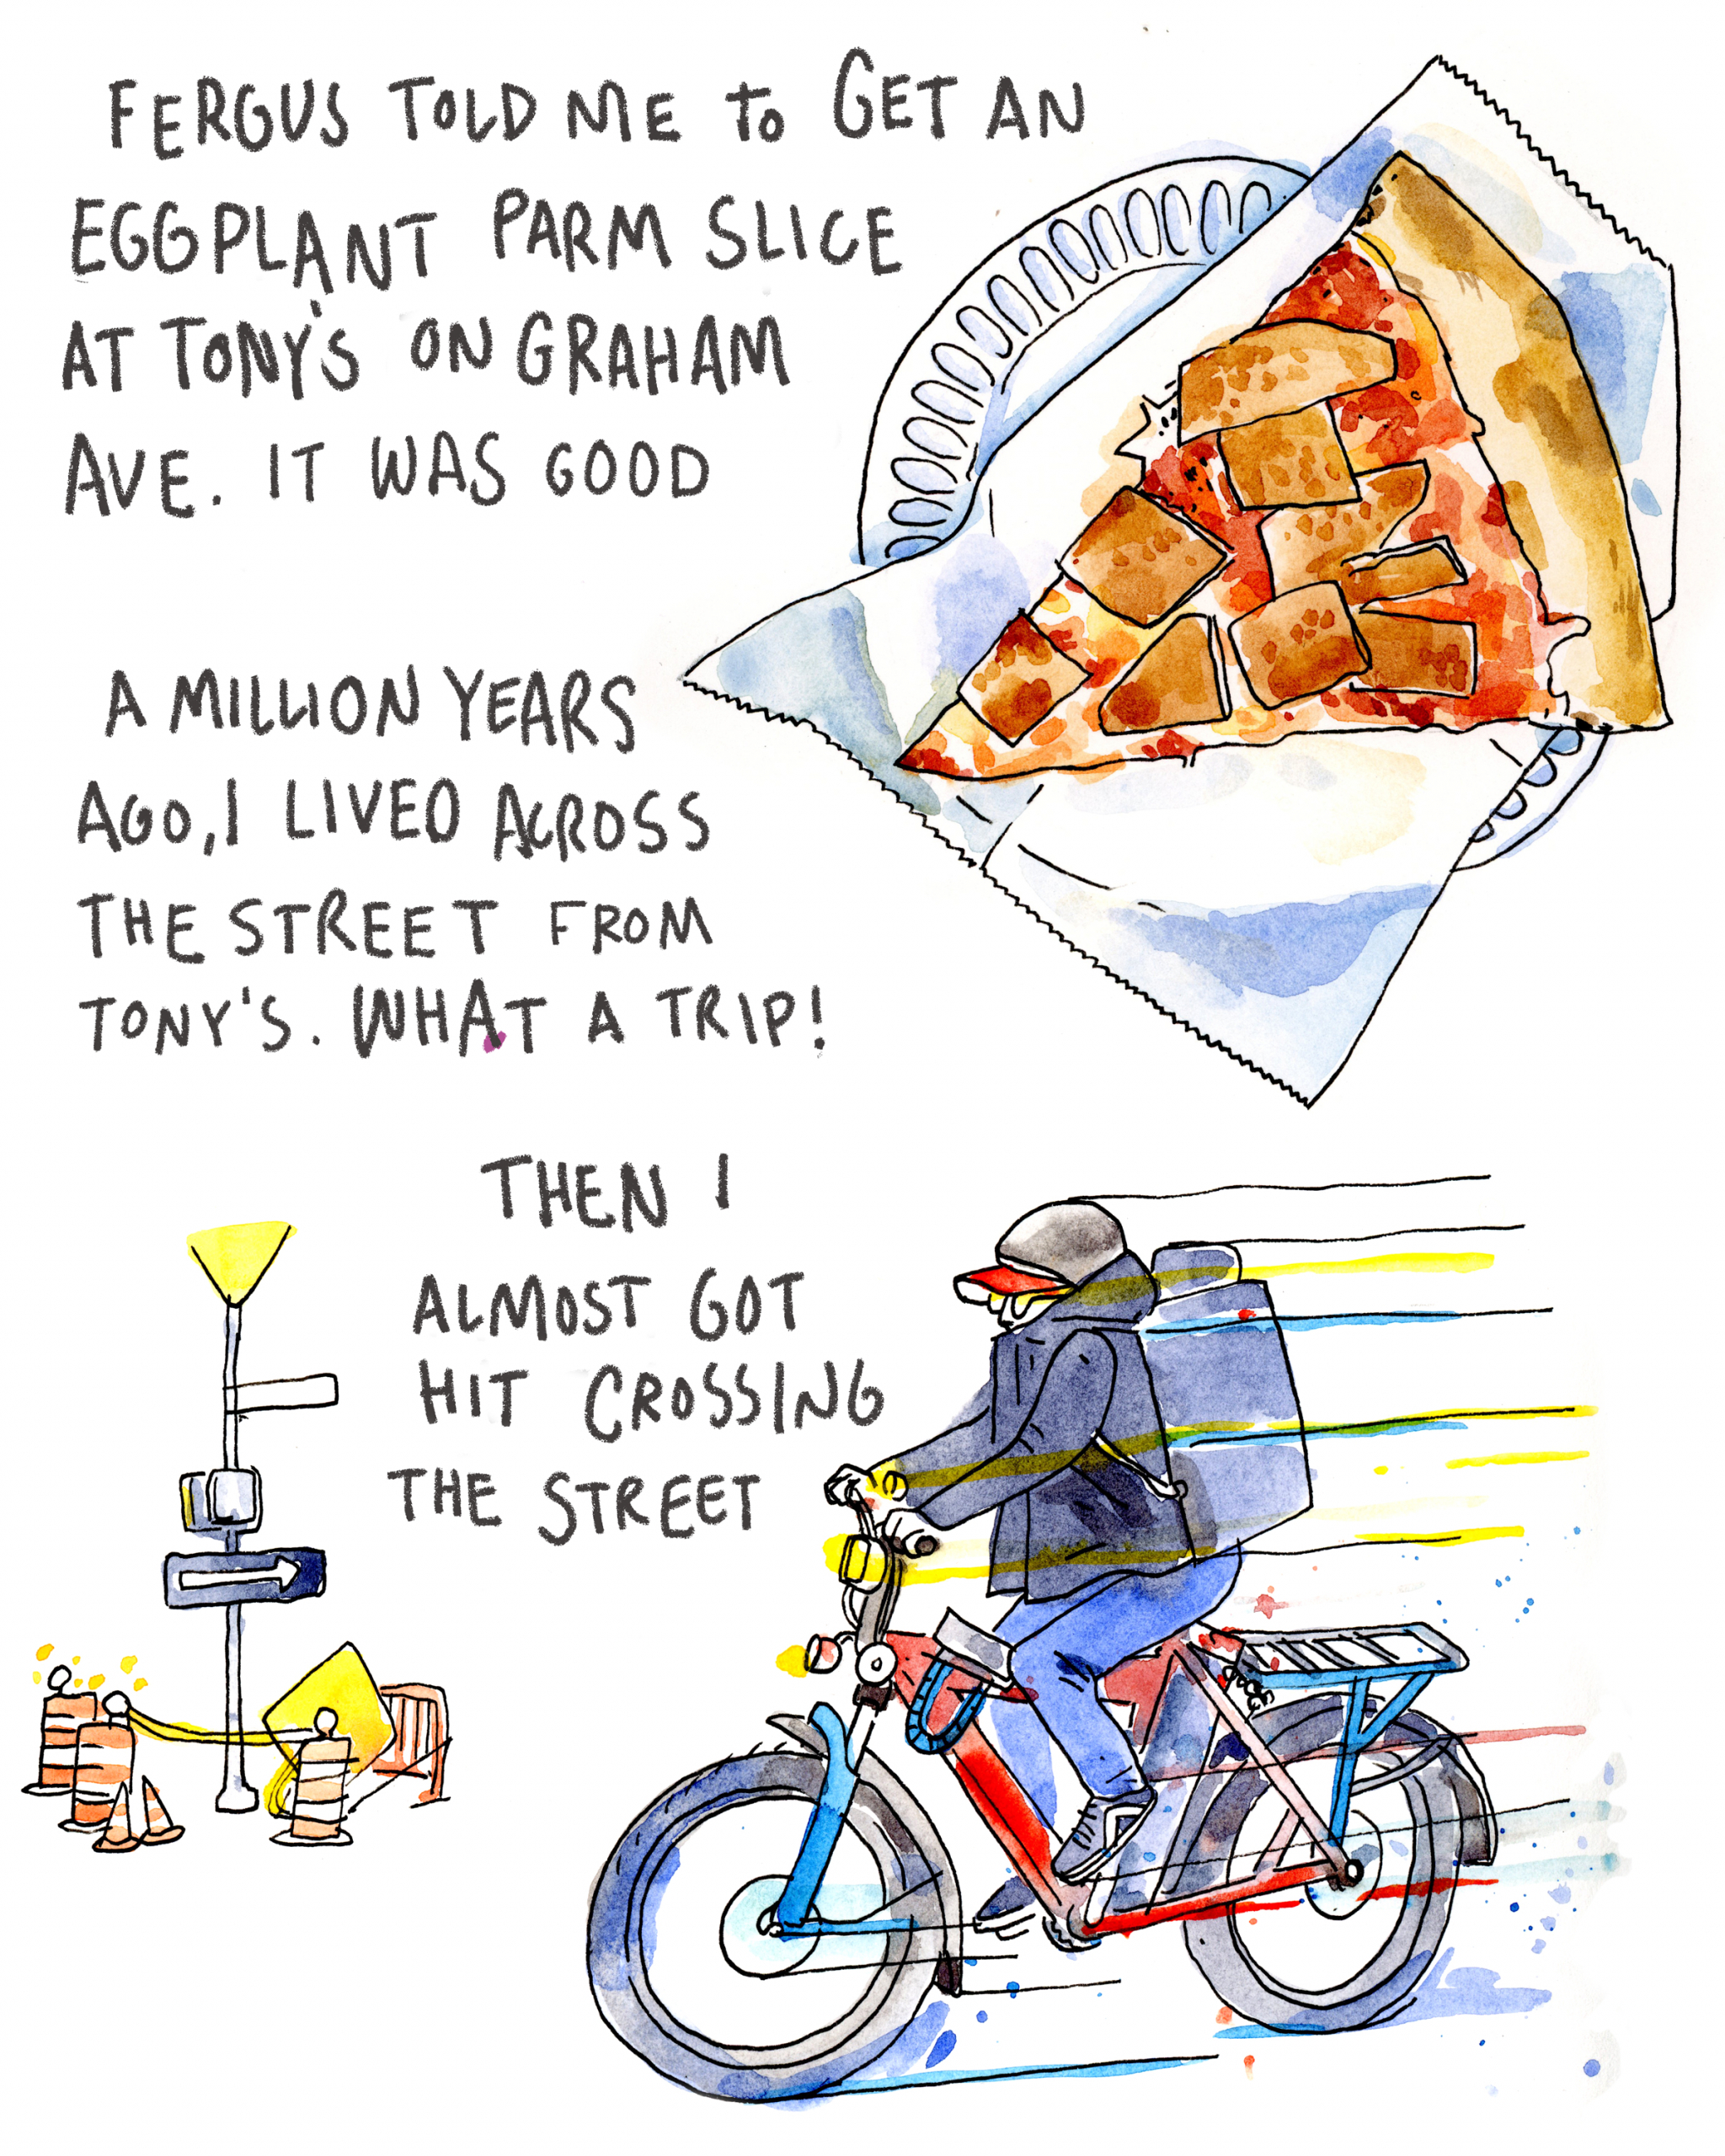 FERGUS TOLD ME TO GET AN
EGGPLANT PARM SLICE
AT TONY'S ON GRAHAM
AVE. IT WAS GOOD
A MILLION YEARS
AGO, I LIVED ACROSS
THE STREET FROM
TONY'S. WHAT A TRIP!
THEN I
ALMOST GOT
HIT CROSSING
THE STREET